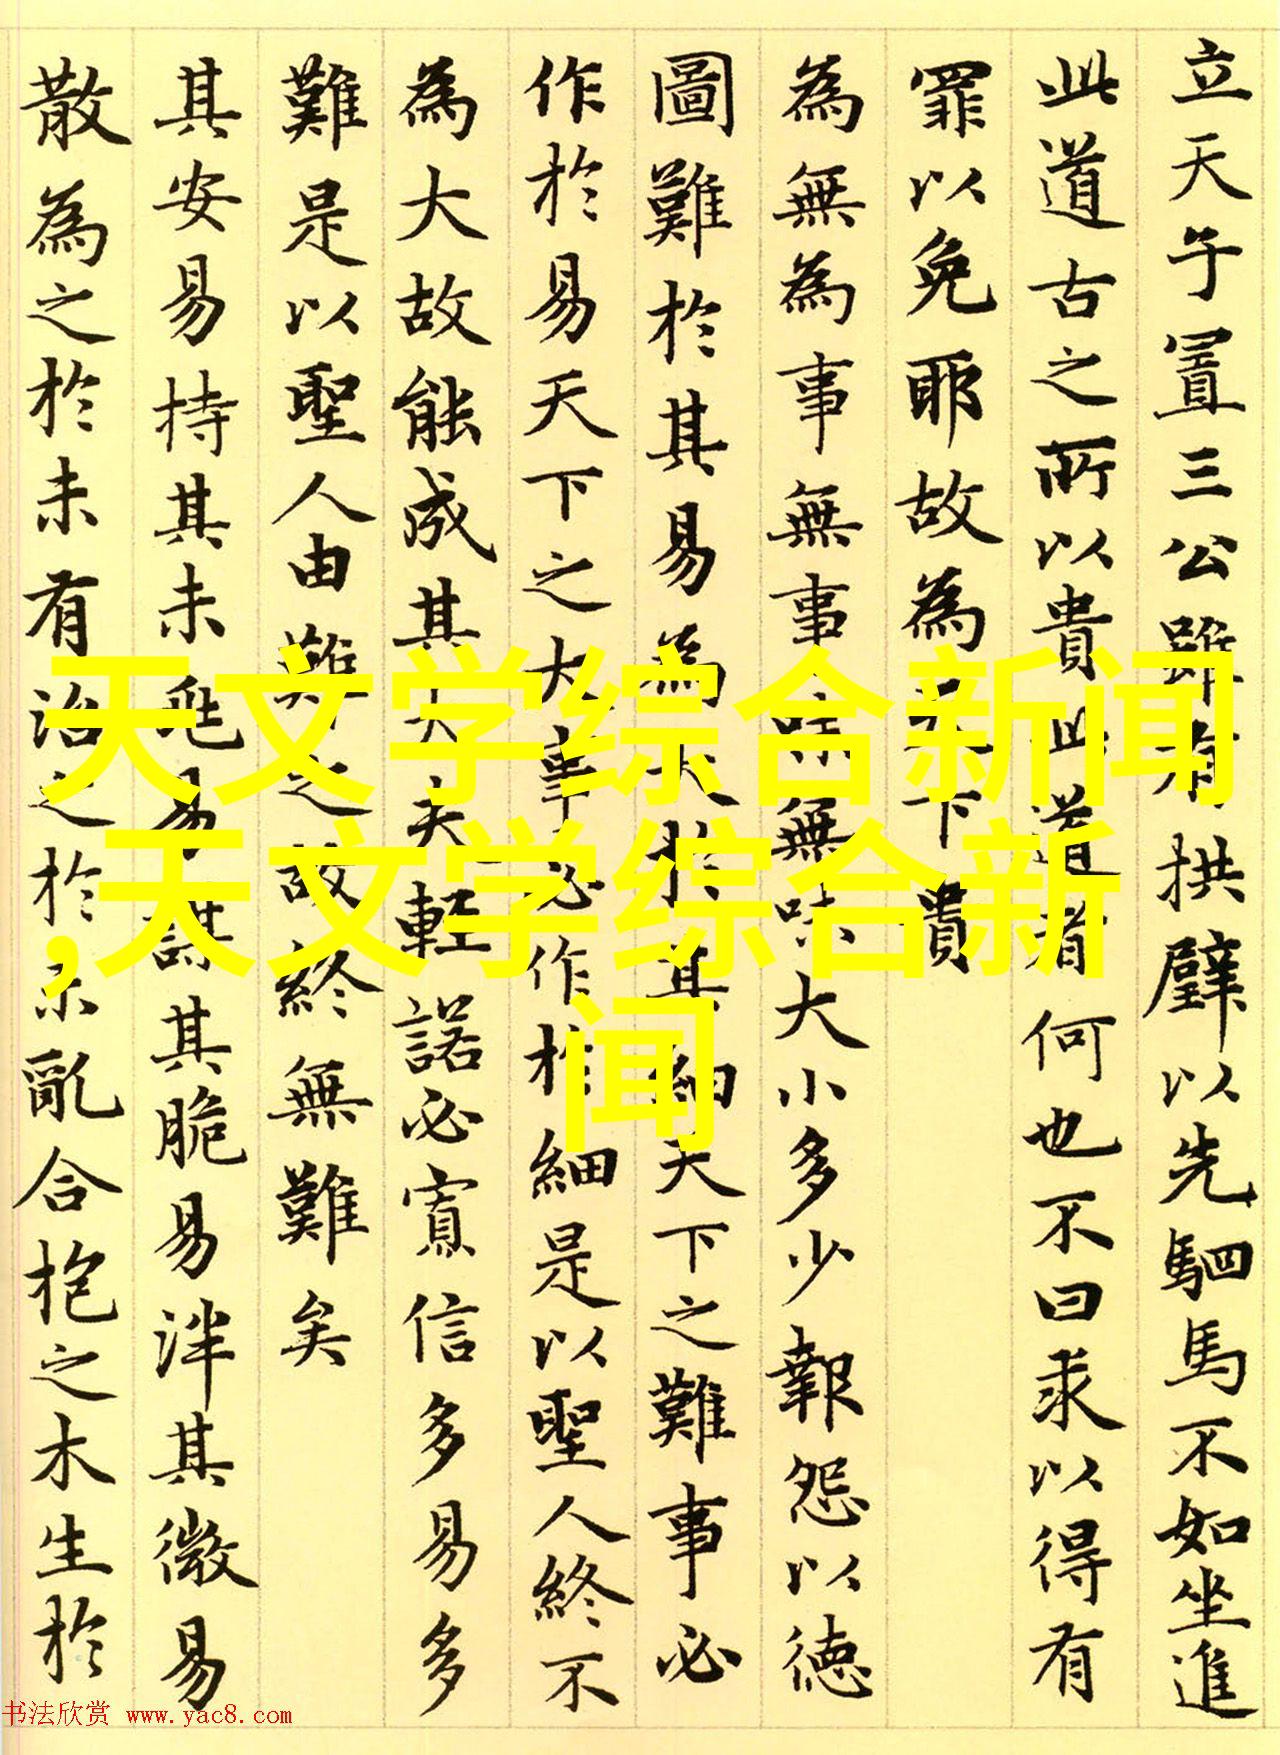 立天子置三公雖有拱璧以先駟馬不如坐進
此道古之所以貴此道者何也不曰求以得有
罪以免耶故為天下貴
為無為事無事味無味大小多少報怨以德
圖難於其易為大於其細天下之難事必
作於易天下之大事必作於細是以聖人終不
為大故能成其大夫輕諾必寡信多易多
難是以聖人由難之故終無難矣
其安易持其未兆易謀其脆易泮其微易
散為之於未有治之於未亂合抱之木生於
天文学综合新闻
,天文学综合新
闻
书法欣赏 www.yac8.com